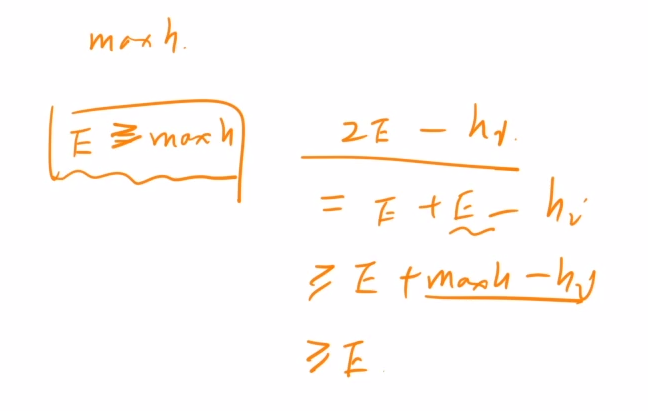 max h.
E ≥ max h
2E - hi
= E + E - hi
≥ E + max h - hi
≥ E